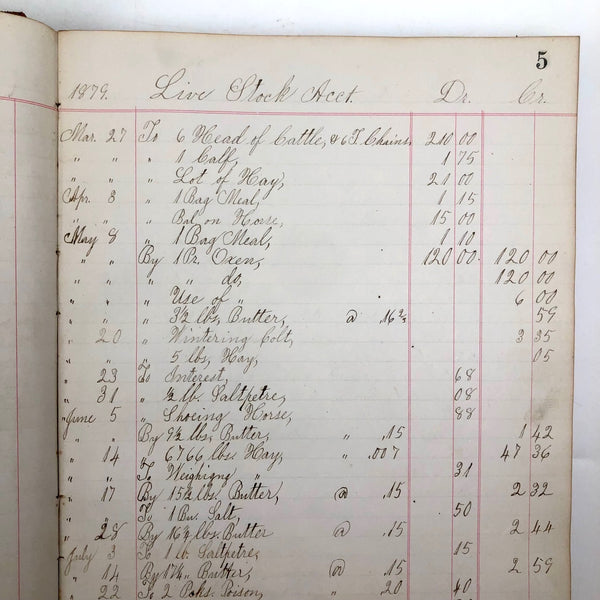 5
1879. Live Stock Acct. Dr. Cr.
Mar. 27 To 6 Head of Cattle, & 6 T Chains, 210 00
" " " 1 Calf, 1 75
" " " Lot of Hay, 21 00
Apr. 8 " 1 Bag Meal, 1 15
" " " Bal. on Horse, 15 00
May 8 " 1 Bag Meal, 1 10
" " By 1 Pr. Oxen, 120 00 120 00
" " " " do, 120 00
" " " Use of " 6 00
" " " 3½ lbs. Butter, @ .16⅔ 59
" 20 " Wintering Colt, 3 35
" " " 5 lbs, Hay, 05
" 23 To Interest, 68
" 31 " ½ lb. Saltpetre, 08
June 5 " Shoeing Horse, 88
" " By 9½ lbs. Butter, " .15 1 42
" 14 " 6766 lbs. Hay, " .007 47 36
" " To Weighigne " 31
" 17 By 15½ lbs. Butter, @ .15 2 32
" " To 1 Bus. Salt, 50
" 28 By 16¼ lbs. Butter @ .15 2 44
July 3 To 1 lb. Saltpetre, 15
" 14 By 17¼ " Butter, @ .15 2 59
" 22 To 2 Paks. Poison, " 20 40